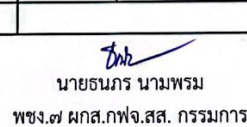 นายธนภร นามพรม
พชง.๗ ผกส.กฟจ.สส. กรรมการ